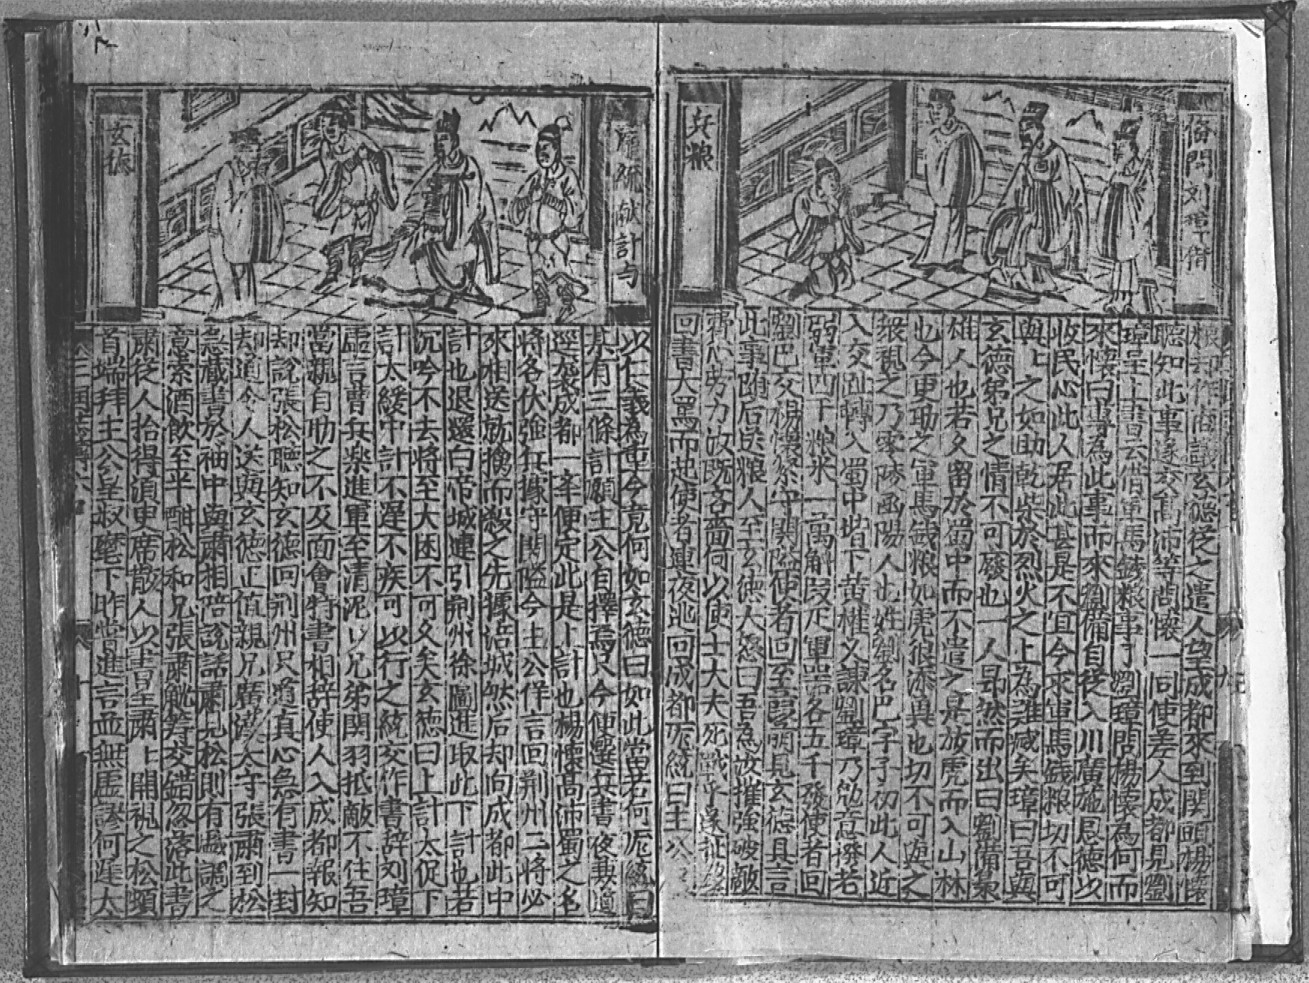 俻問刘璋借
兵粮
聽知此事遂交高沛等問懷一同使差人成都見劉
璋呈上書云借軍馬錢粮事了劉璋問楊懷為何而
來懷曰專為此事而來劉備自從入川廣施恩德以
收民心此人居此甚是不宜今求軍馬錢粮切不可
與与之如助乾柴於烈火之上為難滅矣璋曰吾與
玄德弟兄之情不可廢也一人昂然而出曰劉備梟
雄人也若久留於蜀中而不遣之是放虎而入山林
也今更助之軍馬錢粮如虎狼添翼也切不可與之
衆視之乃零陵人也姓劉名巴字子初此人近
入交趾轉入蜀中堦下黄權又諫劉璋乃勉意撥老
弱軍四下粮米一萬斛叚疋軍器各五千發使者回
劉巴交楊懷緊守関隘使者回至葭萌見玄德具言
此事随后送粮人至玄德大怒曰吾為汝摧強破敵
費心劳力汝既吝嗇何以使士大夫死戰乎遂扯
回書大罵而起使者連夜迯回成都庞統曰主公
龐統献計与
玄德
以仁義為重今竟何如玄德曰如此當若何庞統曰
某有三條計願主公自擇焉只今便選兵晝夜兼道
逕襲成都一羊便定此是上計也楊懷高沛蜀之名
將各伏強兵據守関隘今主公佯言回荆州二將必
來相送就擒而殺之先據涪城然后却向成都此中
計也退還白帝城連引荆州徐圖進取此下計也若
沉吟不去將至大困不可久矣玄德曰上計太促下
計太緩中計不遲不疾可以行之統交作書辞刘璋
虚言曹兵楽進軍至清泥以兄弟関羽抵敵不住吾
當親自助之不及面會特書相辞使人入成都報知
却說張松聴知玄德回荆州只道真心急有書一封
却道令人送與玄德正值親兄廣漢太守張肅到松
急藏書於袖中與肅相陪說話肅見松則有
意索酒飲至半酣松和兄張肅觥筹交錯忽落此書
肅從人拾得須臾席散人以書呈肅上開視之松頓
首端拜主公皇叔麾下昨嘗進言並無虚謬何遲太